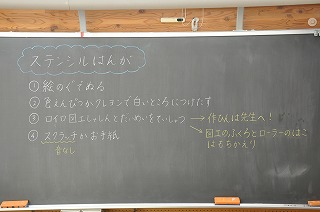 ステンシルはんが
① 絵のぐでぬる
② 色えんぴつかクレヨンで白いところにつけたす
③ ロイロ 図工しゃしんとだいめいをていしゅつ → 作ひんは先生へ!
→ 図工のふくろとローラーのはこはもちかえり
④ スクラッチかお手紙
音なし